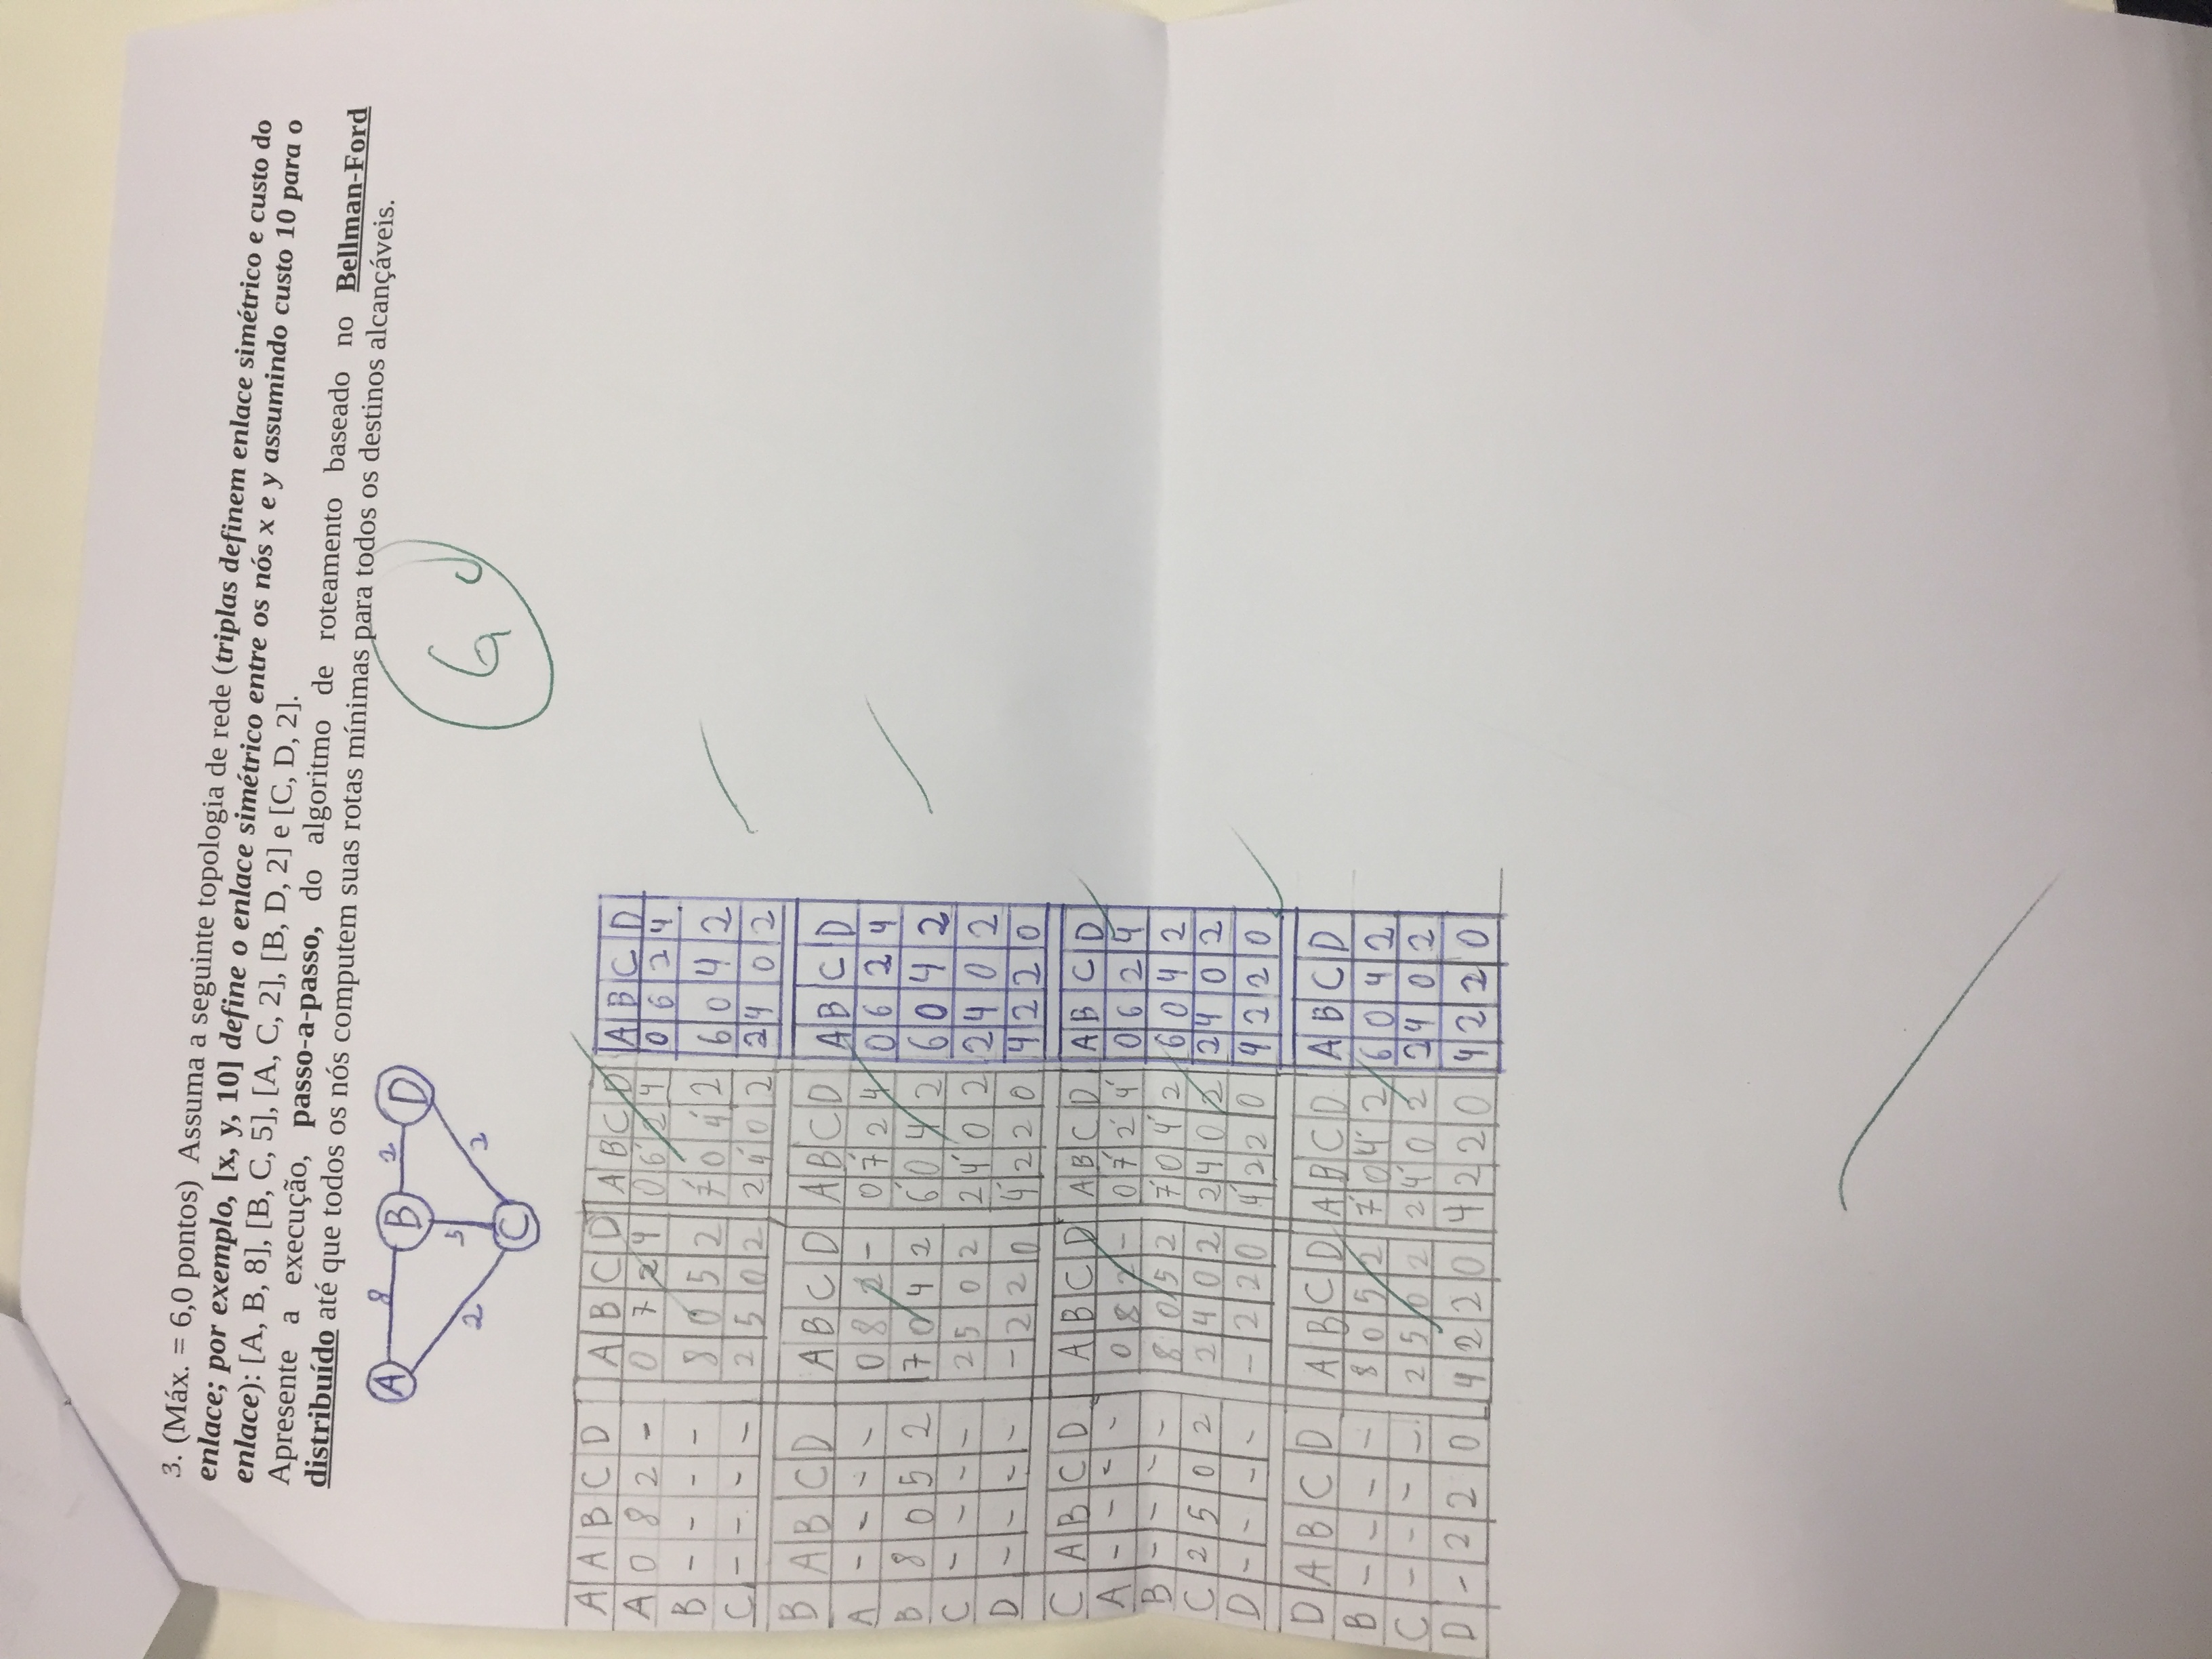 3. (Máx. = 6,0 pontos) Assuma a seguinte topologia de rede (triplas definem enlace simétrico e custo do
enlace; por exemplo, [x, y, 10] define o enlace simétrico entre os nós x e y assumindo custo 10 para o
enlace): [A, B, 8], [B, C, 5], [A, C, 2], [B, D, 2] e [C, D, 2].
Apresente a execução, passo-a-passo, do algoritmo de roteamento baseado no Bellman-Ford
distribuído até que todos os nós computem suas rotas mínimas para todos os destinos alcançáveis.
A 8 B 2 D
2 5 2
C
6
A A B C D A B C D A B C D A B C D
A 0 8 2 - 0 7 2 4 0 6 2 4 0 6 2 4
B - - - - 8 0 5 2 7 0 4 2 6 0 4 2
C - - - - 2 5 0 2 2 4 0 2 2 4 0 2
B A B C D A B C D A B C D A B C D
A - - - - 0 8 2 - 0 7 2 4 0 6 2 4
B 8 0 5 2 7 0 4 2 6 0 4 2 6 0 4 2
C - - - - 2 5 0 2 2 4 0 2 2 4 0 2
D - - - - - 2 2 0 4 2 2 0 4 2 2 0
C A B C D A B C D A B C D A B C D
A - - - - 0 8 2 - 0 7 2 4 0 6 2 4
B - - - - 8 0 5 2 7 0 4 2 6 0 4 2
C 2 5 0 2 2 4 0 2 2 4 0 2 2 4 0 2
D - - - - - 2 2 0 4 2 2 0 4 2 2 0
D A B C D A B C D A B C D A B C D
B - - - - 8 0 5 2 7 0 4 2 6 0 4 2
C - - - - 2 5 0 2 2 4 0 2 2 4 0 2
D - 2 2 0 4 2 2 0 4 2 2 0 4 2 2 0